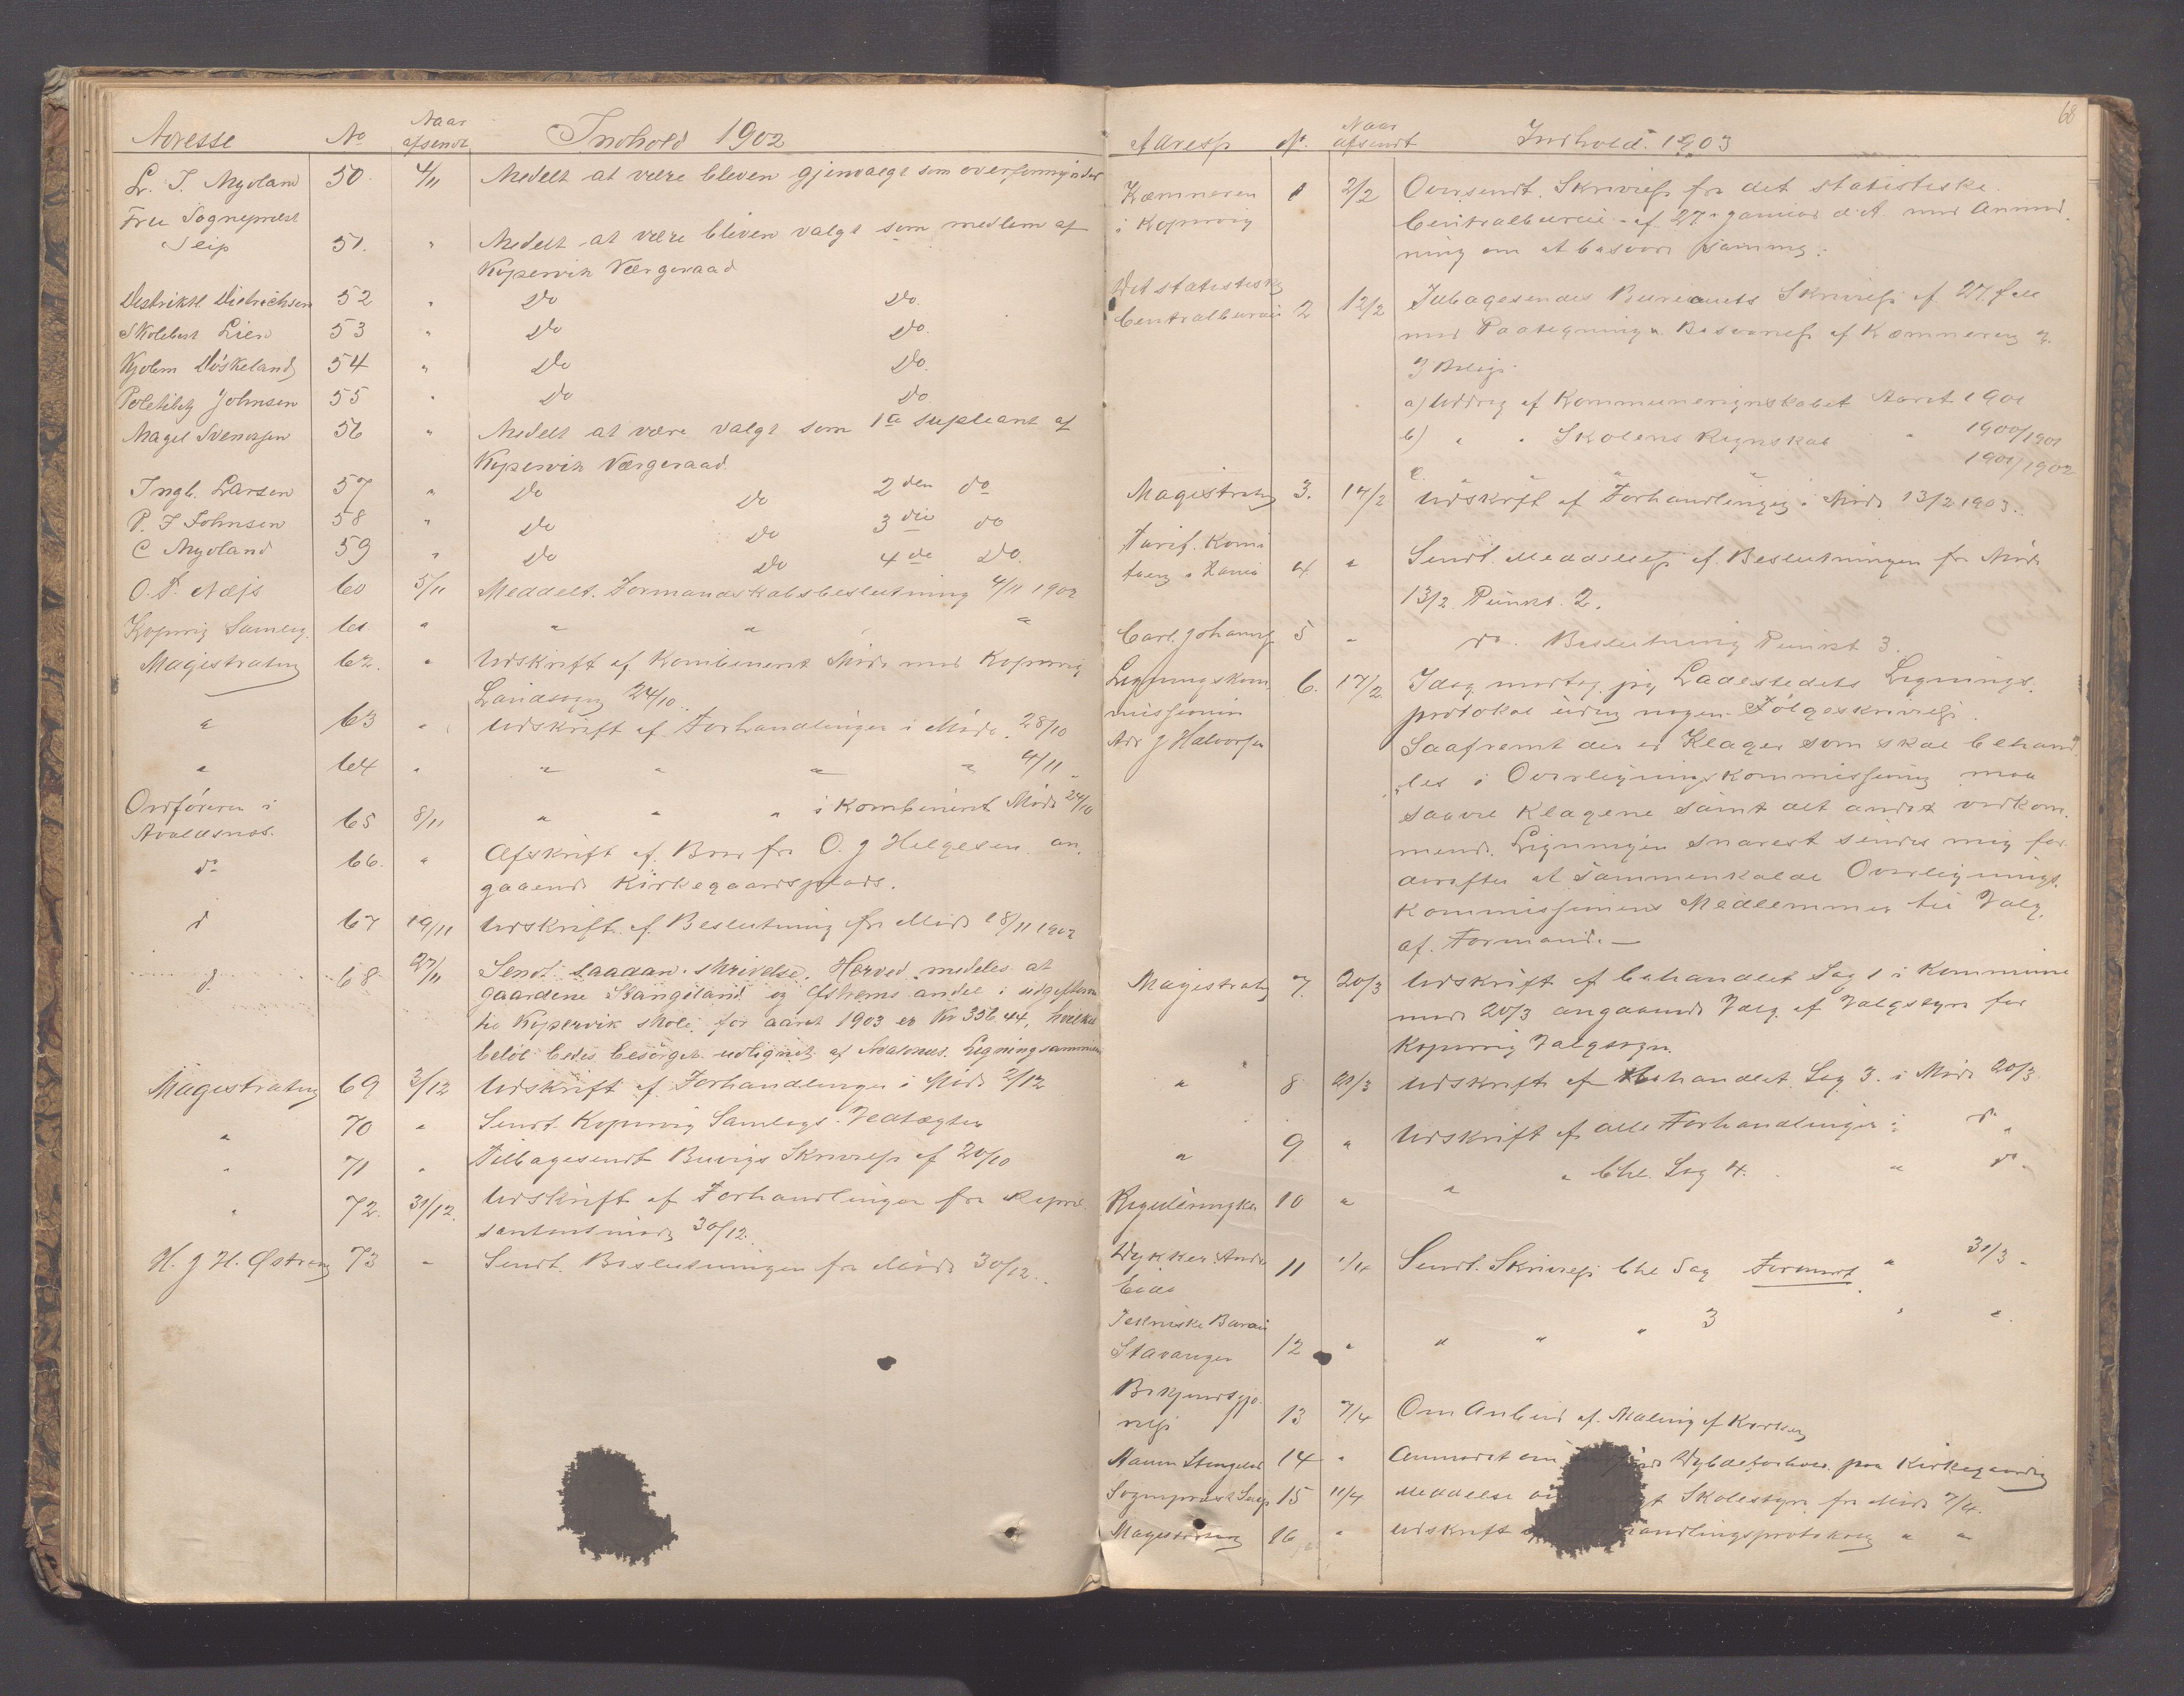 Adresse No Naar afsendt Indhold 1902
L. T. Nygland 50 4/11 Medelt at være bleven gjenvalgt som overformynder
Fru Sogneprest
Seip 51. " Medelt at være bleven valgt som medlem af
Kopervik Værgeraad
Distriktl. Dietrichsen 52 " Do Do.
Skolebest Lien 53 " Do Do.
Kjøbm Døskeland 54 " Do Do.
Politibtj Johnsen 55 " Do Do
Magel Svendsen 56 " Medelt at være valgt som 1ste supleant af
Kopervik Værgeraad.
Ingb. Larsen 57 " Do Do 2den do
P. J Johnsen 58 " Do Do 3die do
C Nygland 59 " Do Do 4de Do.
O. P. Næss 60 5/11 Meddelt. Formandskabsbeslutning 4/11 1902
Kopervig Samlag. 61 " " " "
Magistraten 62. " Udskrift af Kombineret Møde med Kopervig
Landsogn 24/10.
" 63 " Udskrift af Forhandlinger i Møde 28/10
" 64 " " " " " 4/11
Ordføreren i
Avaldsnæs. 65 8/11 " " " i Kombineret Møde 24/10
do 66. " Afskrift af Brev fra O. J Helgesen an-
gaaende Kirkegaardsplads.
d 67 19/11 Udskrift af Beslutning fra Møde 18/11 1902
d 68 27/11 Sendt saadan skrivelse. Herved medeles at
gaardene Stangeland og Østrems andel i udgifterne
til Kopervik skole for aaret 1903 er Kr 356.44, hvilket
beløb bedes besørget udlignet af Avaldsnes. Ligning sammen
Magistraten 69 3/12 Udskrift af Forhandlinger i Møde 2/12
" 70 " Sendt Kopervig Samlags Vedtægter
" 71 " Tilbagesendt Buvigs Skrivelse af 20/10
" 72. 31/12. Udskrift af Forhandlinger fra Repræ-
sentantmøde 30/12.
H. J H. Østrem 73 " Sendt Beslutningen fra Møde 30/12.
68
Adresse No. Naar afsendt Indhold. 1903
Kæmneren
i Kopervig 1 2/2 Oversendt Skrivelse fra det statistiske
Centralbureau af 27 januar d.A. med Anmod-
ning om at besvare samme.
Det statistiske
Centralbureau 2 12/2 Tilbagesendes Bureauets Skrivelse af 27
med Paategning & Besvarelse af Kæmneren &
3 Bilag.
a) Uddrag af Kommuneregnskabet Aaret 1901
b) " " Skolens Regnskab " 1900/1901
c " " " 1901/1902
Magistraten 3. 14/2 Udskrift af Forhandlinger i Møde 13/2 1903.
4 " Sendt Meddelelse af Beslutningen fra Møde
13/2 Punkt 2.
Carl Johannesen 5 " do. Beslutning Punkt 3.
Lignningskom-
missionen
Adr J Halvorsen 6. 17/2 Idag modtog jeg Ladestedets Lignings-
protokol uden nogen Følgeskrivelse.
Saafremt der er Klager som skal behand-
les i Overligningskommissionen maa
saavel Klagene samt alt andet vedkom-
mende Ligningen snarest sendes mig for
derefter at sammenkalde Overlignings-
kommissionens Medlemmer til Valg
af Formand. —
Magistraten 7. 20/3 Udskrift af behandlet Sag 1 i Kommune
møde 20/3 angaaende Valg af Valgstyre for
Kopervig Valgsogn.
" 8 21/3 Udskrift af behandlet Sag 3. i Møde 20/3
" 9 " Udskrift af alle Forhandlinger i do
Reguleringsk. 10 " " " bhl. Sag 4. " do
Dykker Andr
Eide 11 1/4 Sendt Skrivelse bhl Sag " 31/3
Tekniske Bureau
Stavanger 12 " " " " 3 " "
Bekjendtgjø-
relse 13 7/4 Om Anbud af Maling af Kirken
14 " Anmodet om Dybdeforhold paa Kirkegaarden
Sogneprest Seip 15 11/4 Meddelse om Skolestyre fra Møde 7/4.
Magistraten 16 " Udskrift handlingsprotokollen " "